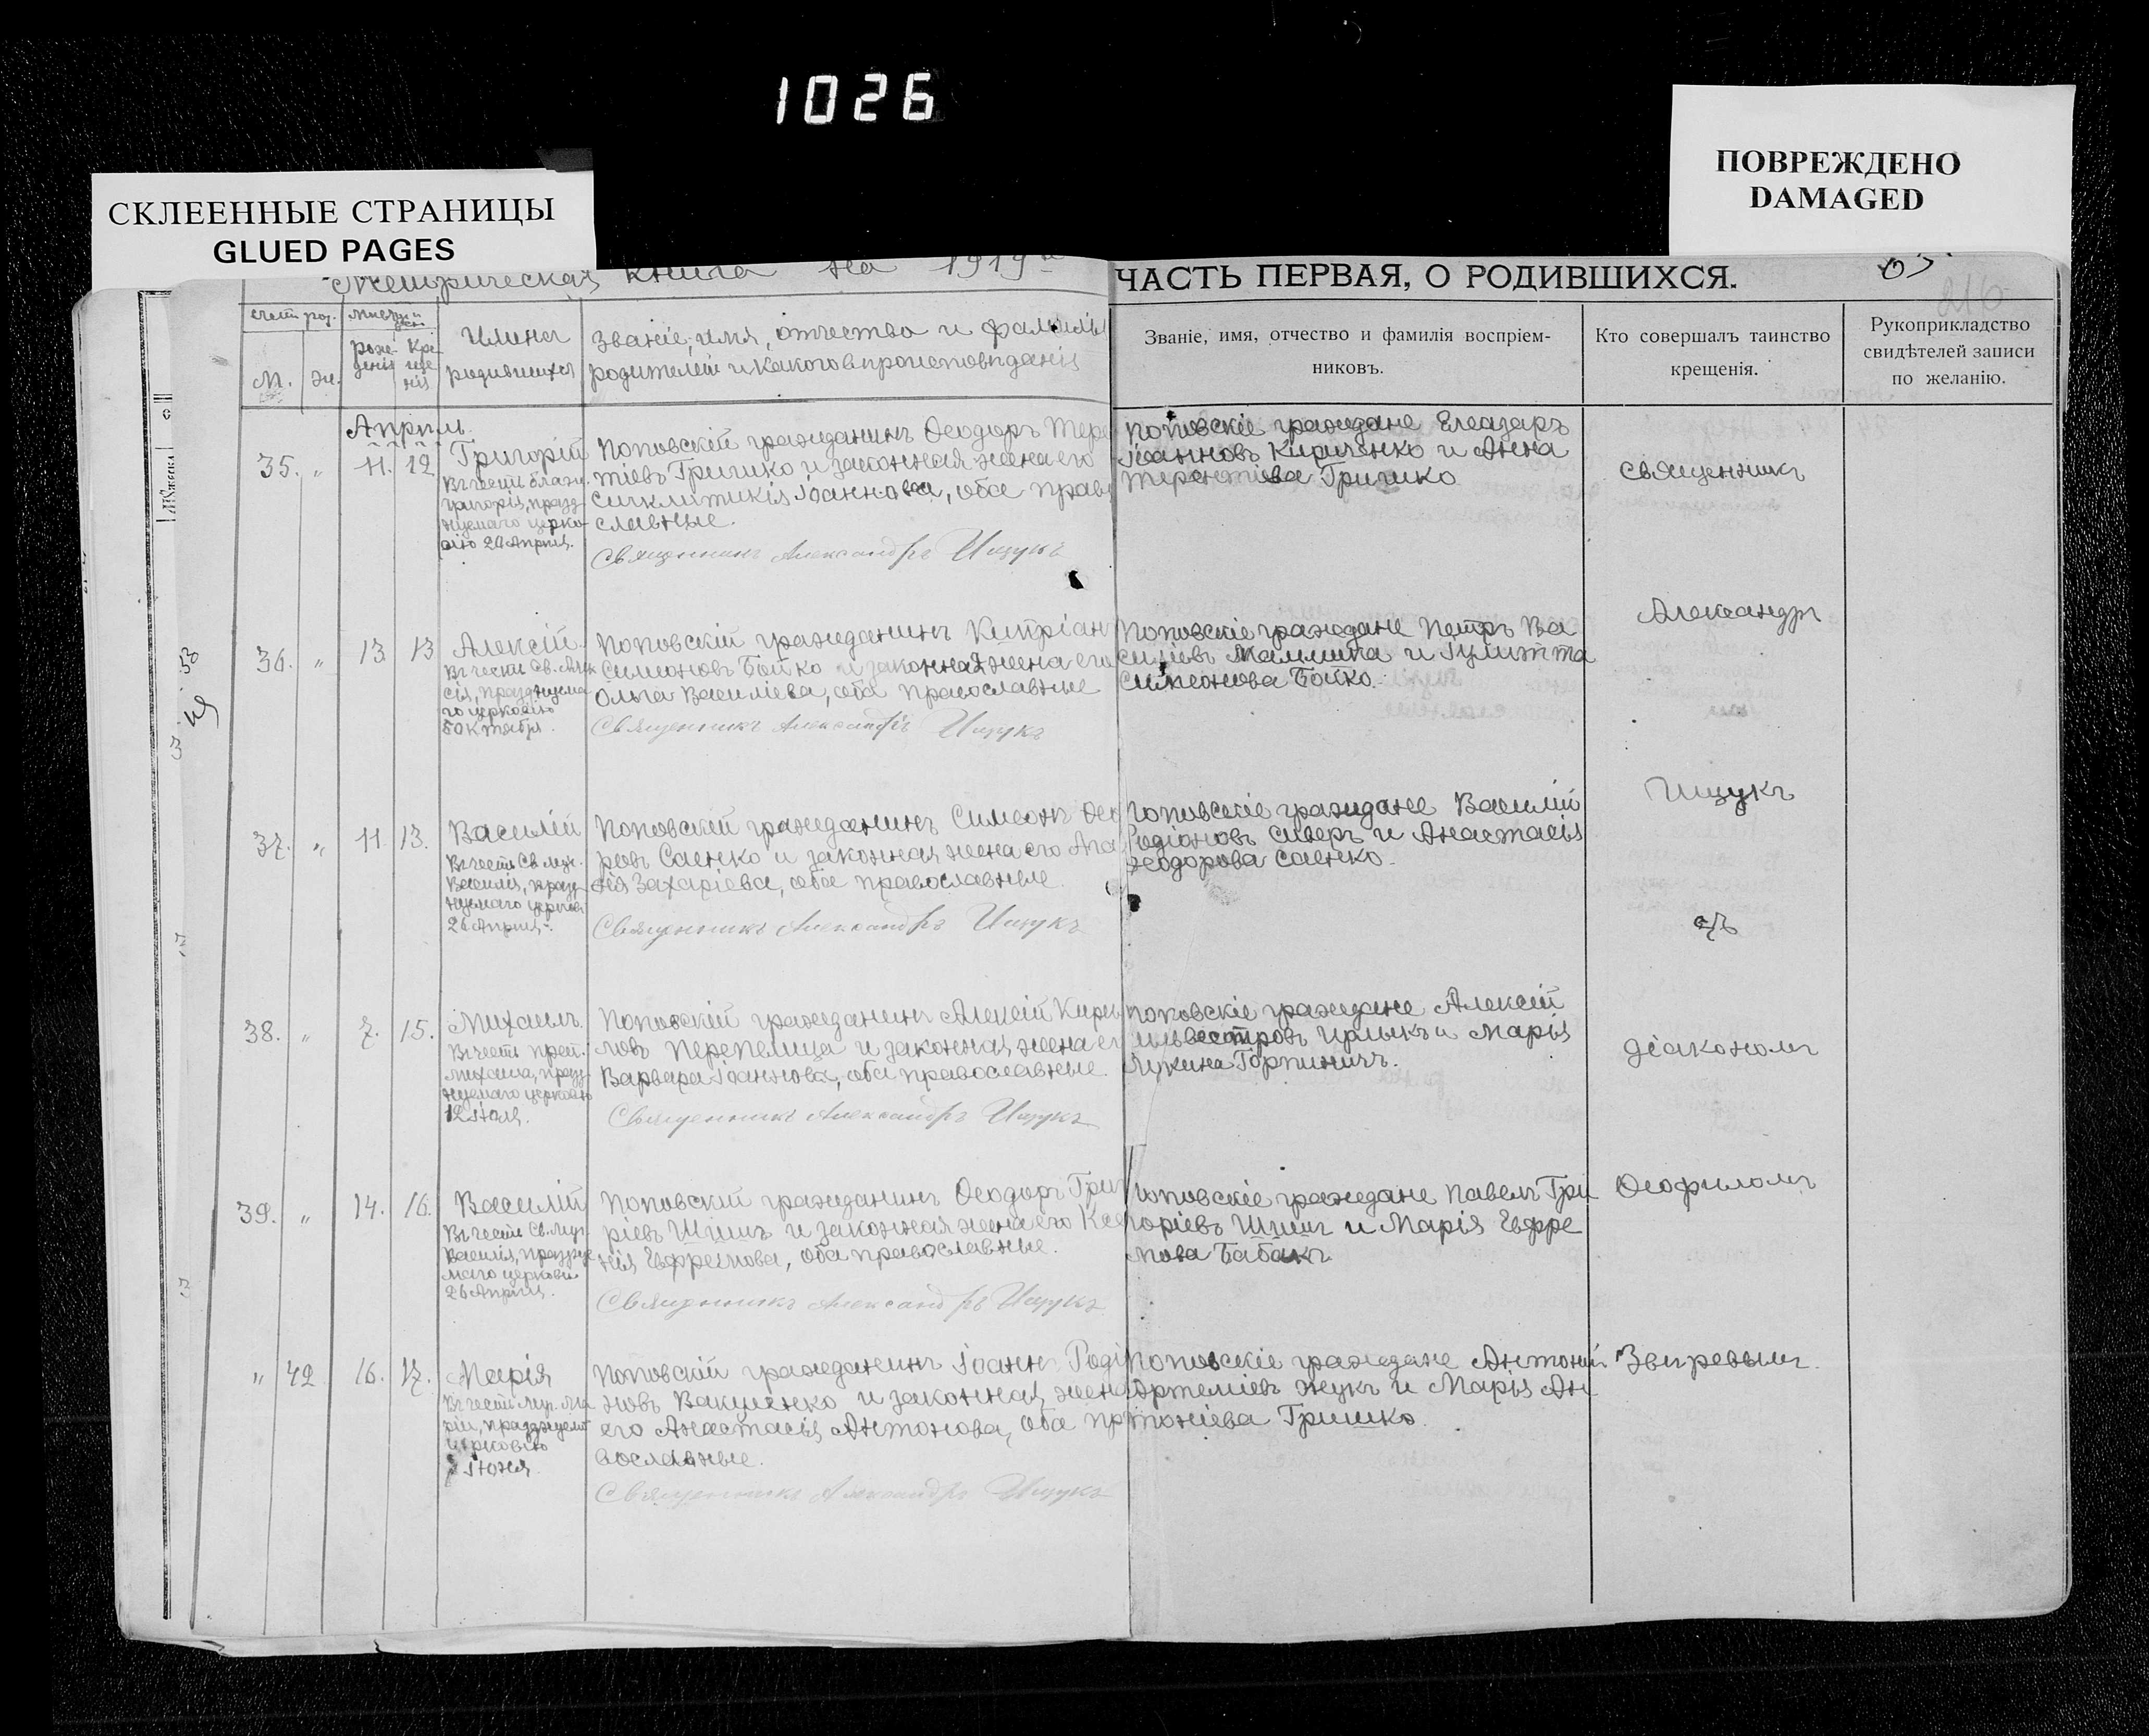 1026
СКЛЕЕННЫЕ СТРАНИЦЫ
GLUED PAGES
ПОВРЕЖДЕНО
DAMAGED
Метрическая книга на 1919
ЧАСТЬ ПЕРВАЯ, О РОДИВШИХСЯ.
216
М.
Имена
родившихся
Званіе, имя, отчество и фамилія
родителей и какого вѣроисповѣданія
Званіе, имя, отчество и фамилія воспріем-
никовъ.
Кто совершалъ таинство
крещенія.
Рукоприкладство
свидѣтелей записи
по желанію.
Апрѣль.
35. " 11. 12
Григорій
григорія, празд-
нуемаго церко-
вію 20 Апрѣля.
Поповскій гражданинъ Ѳеодоръ Тере
тіевъ Гришко и законная жена его
Синклитикія Іоаннова, оба прав
славные.
Священникъ Александръ Ищукъ
Поповскіе граждане Елеазаръ
Іоанновъ Кириченко и Анна
Терентіева Гришко
36. " 13 13
Алексій
сія, празднуема
го церковію
5 Октября.
Поповскій гражданинъ Кипріан
Симеоновъ Бойко и законная жена его
Ольга Василіева, оба православные
Священникъ Александръ Ищукъ
Поповскіе граждане Петръ Ва
силіевъ и Іулитта
Симеонова Бойко.
37. " 11. 13.
Василій
Въ честь Св. муч.
Василія, празд-
нуемаго церковію
26 Апрѣля.
Поповскій гражданинъ Симеонъ Ѳео
ровъ Саенко и законная жена его Ага
ѳія Захаріева, оба православные.
Священникъ Александръ Ищукъ
Поповскіе граждане Василій
Родіоновъ Сиверъ и Анастасія
Ѳеодорова Саенко.
38. " 7. 15.
Михаилъ.
Въ честь преп.
Михаила, празд-
нуемаго церковію
12 Іюля.
Поповскій гражданинъ Алексій Кирил
ловъ Перепелица и законная жена ег
Варвара Іоаннова, оба православные.
Священникъ Александръ Ищукъ
Поповскіе граждане Алексій
и Марія
Лукина Горпиничъ.
39. " 14. 16.
Василій
Въ честь Св. муч.
Василія, праздну
маго церковію
26 Апрѣля.
Поповскій гражданинъ Ѳеодоръ Григ
ріевъ Шишъ и законная жена его Ксе
нія Евфремова, оба православные.
Священникъ Александръ Ищукъ
Поповскіе граждане Павелъ Гри
горіевъ Шишъ и Марія Евфре
мова Бабакъ.
" 42 16. 17.
Марія
Въ честь муч. Ма
ріи, празднуемой
церковію
Іюня.
Поповскій гражданинъ Іоаннъ Родіо
новъ Вакуленко и законная жена
его Анастасія Антонова, оба пр
вославные.
Священникъ Александръ Ищукъ
Поповскіе граждане Антоній
Артеміевъ Жукъ и Марія Ан
тоніева Гришко.
священникъ
Александръ
Ищукъ
съ
діакономъ
Ѳеофиломъ
Звѣревымъ.